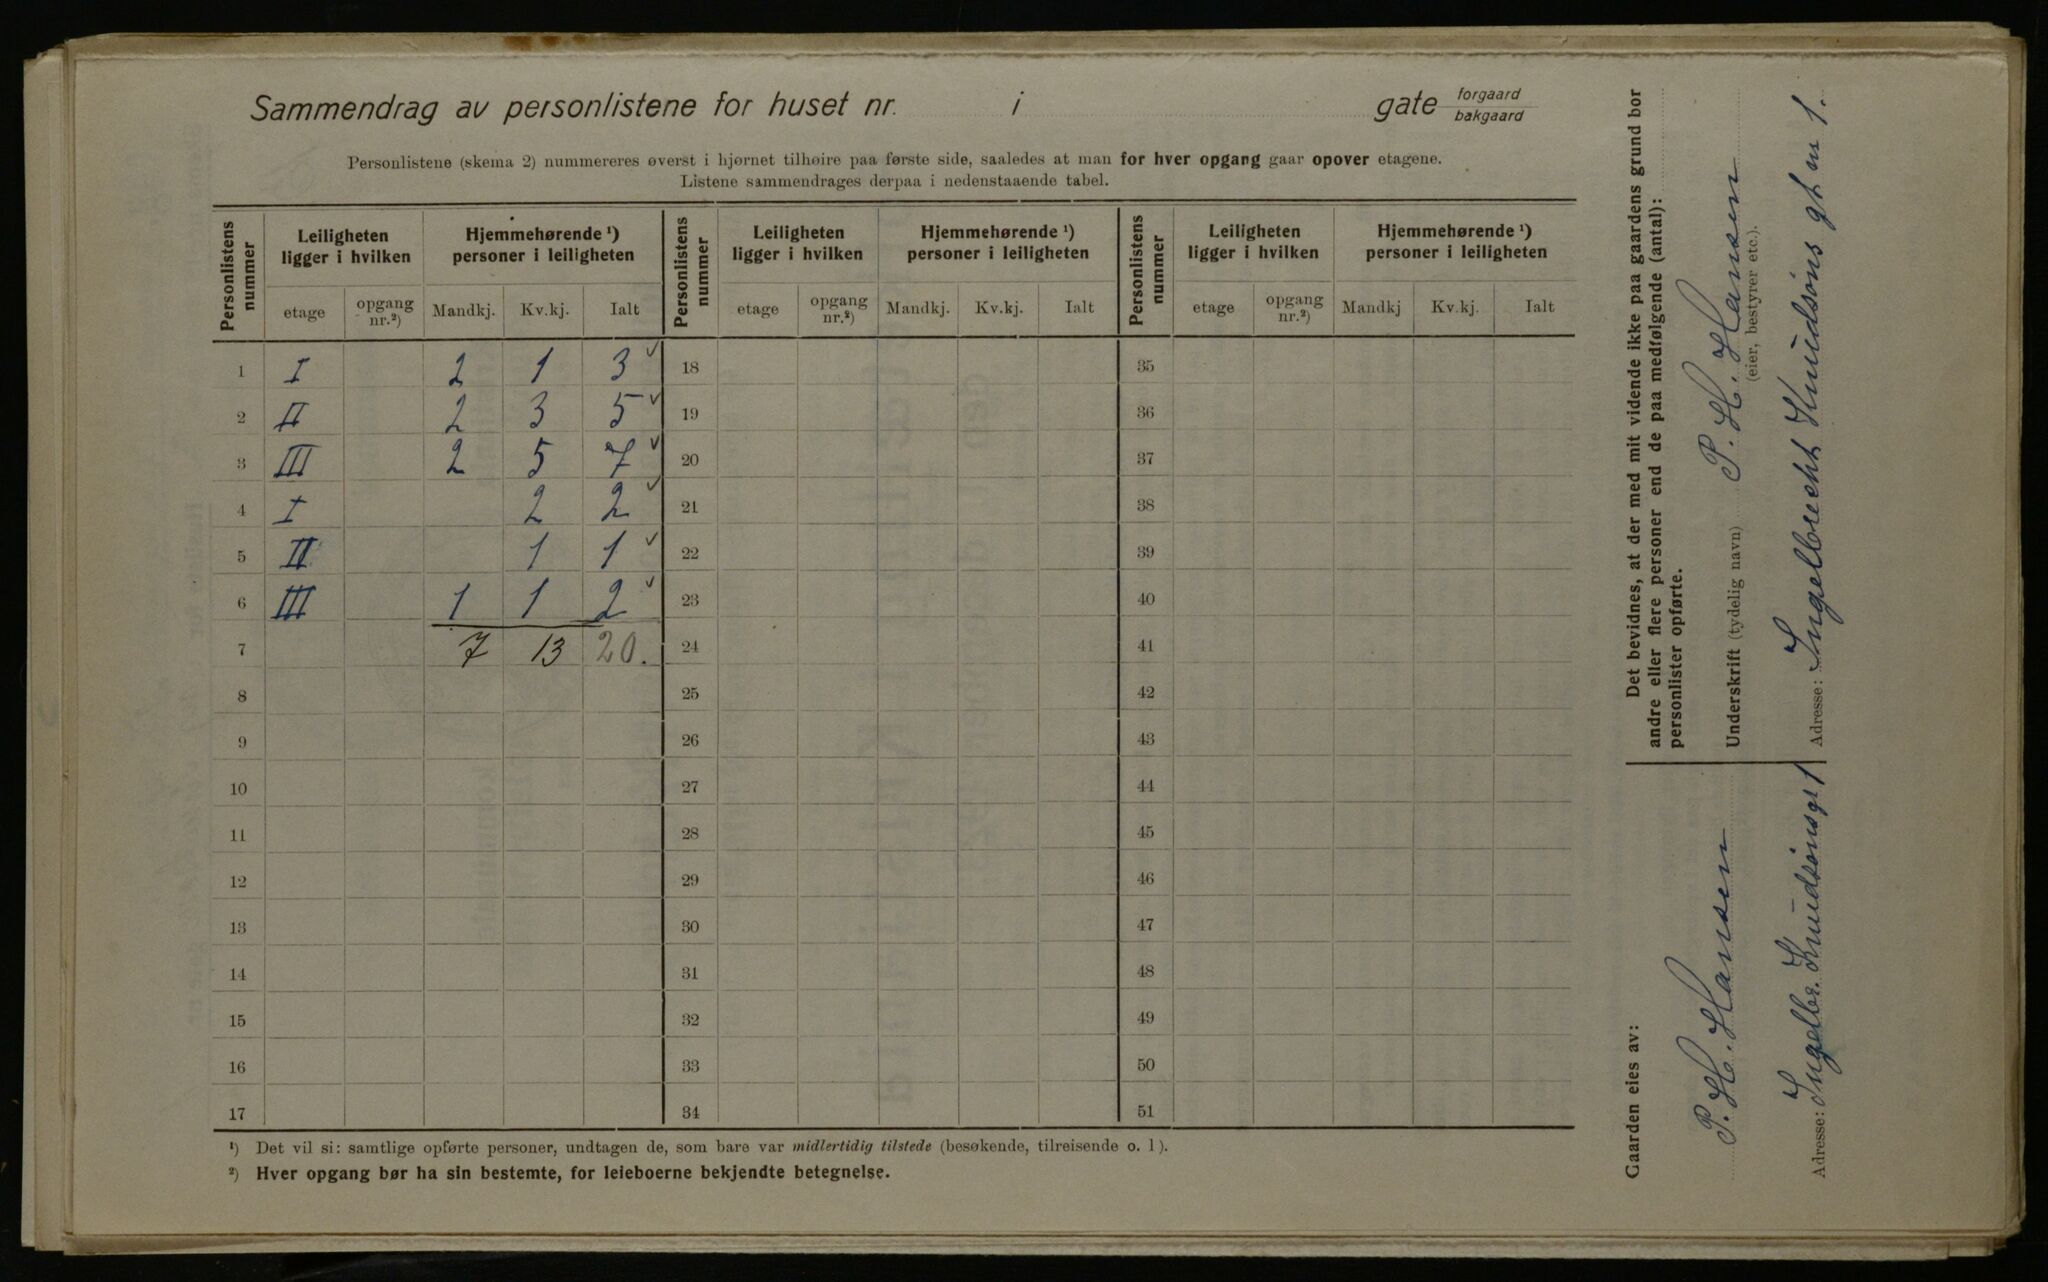 Sammendrag av personlistene for huset nr. i gate forgaard bakgaard
Personlistene (skema 2) nummereres øverst i hjørnet tilhøire paa første side, saaledes at man for hver opgang gaar opover etagene.
Listene sammendrages derpaa i nedenstaaende tabel.
Personlistens nummer Leiligheten ligger i hvilken Hjemmehørende ¹) personer i leiligheten Personlistens nummer Leiligheten ligger i hvilken Hjemmehørende ¹) personer i leiligheten Personlistens nummer Leiligheten ligger i hvilken Hjemmehørende ¹) personer i leiligheten
etage opgang nr.²) Mandkj. Kv.kj. Ialt etage opgang nr.²) Mandkj. Kv.kj. Ialt etage opgang nr.²) Mandkj Kv.kj. Ialt
1 I 2 1 3 ✓ 18 35
2 II 2 3 5 ✓ 19 36
3 III 2 5 7 ✓ 20 37
4 I 2 2 ✓ 21 38
5 II 1 1 ✓ 22 39
6 III 1 1 2 ✓ 23 40
7 7 13 20. 24 41
8 25 42
9 26 43
10 27 44
11 28 45
12 29 46
13 30 47
14 31 48
15 32 49
16 33 50
17 34 51
¹) Det vil si: samtlige opførte personer, undtagen de, som bare var midlertidig tilstede (besøkende, tilreisende o. l).
²) Hver opgang bør ha sin bestemte, for leieboerne bekjendte betegnelse.
Gaarden eies av:
P. H. Hansen
Adresse: Ingelbr. Knudsöns gt 1
Det bevidnes, at der med mit vidende ikke paa gaardens grund bor
andre eller flere personer end de paa medfølgende (antal):
personlister opførte.
Underskrift (tydelig navn) P. H. Hansen
(eier, bestyrer etc.).
Adresse: Ingelbrecht Knudsöns gt n 1.